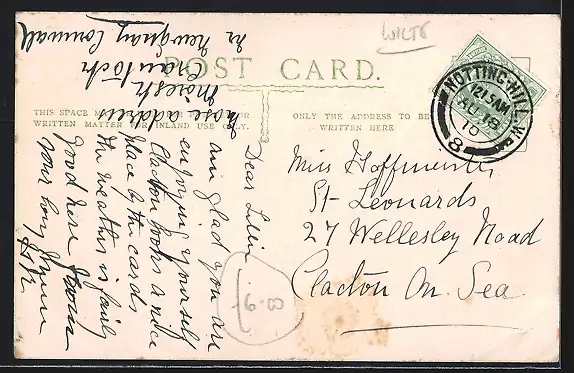 POST CARD.
THIS SPACE M
WRITTEN MATTER FOR INLAND USE ONLY.
ONLY THE ADDRESS TO BE
WRITTEN HERE
WILTS
NOTTING-HILL.W
12.15AM
AU 18
10
8
Miss Hoffmeister
St Leonards
27 Wellesley Road
Clacton On Sea
Dear Lillie
am glad you are
enjoying yourself
Clacton looks a nice
place by the cards
the weather is fairly
good here
your loving
address
Crantock
nr Newquay Cornwall
6-00